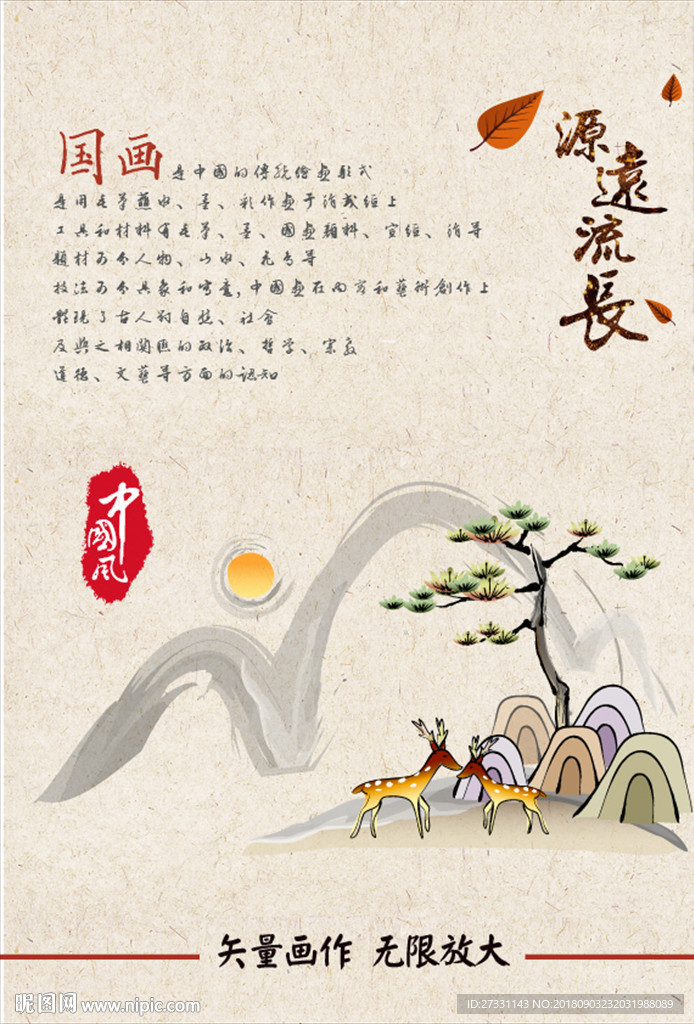 源遠流長
国画是中國的傳統繪畫形式
是用毛筆蘸水、墨、彩作畫于絹或紙上
工具和材料有毛筆、墨、國畫顏料、宣紙、絹等
題材可分人物、山水、花鸟等
技法可分具象和寫意,中國畫在内容和藝術創作上
體現了古人對自然、社會
及與之相關聯的政治、哲学、宗教
道德、文藝等方面的認知
中國风
矢量画作 无限放大
昵图网 www.nipic.com
ID:27331143 NO:20180903232031988089